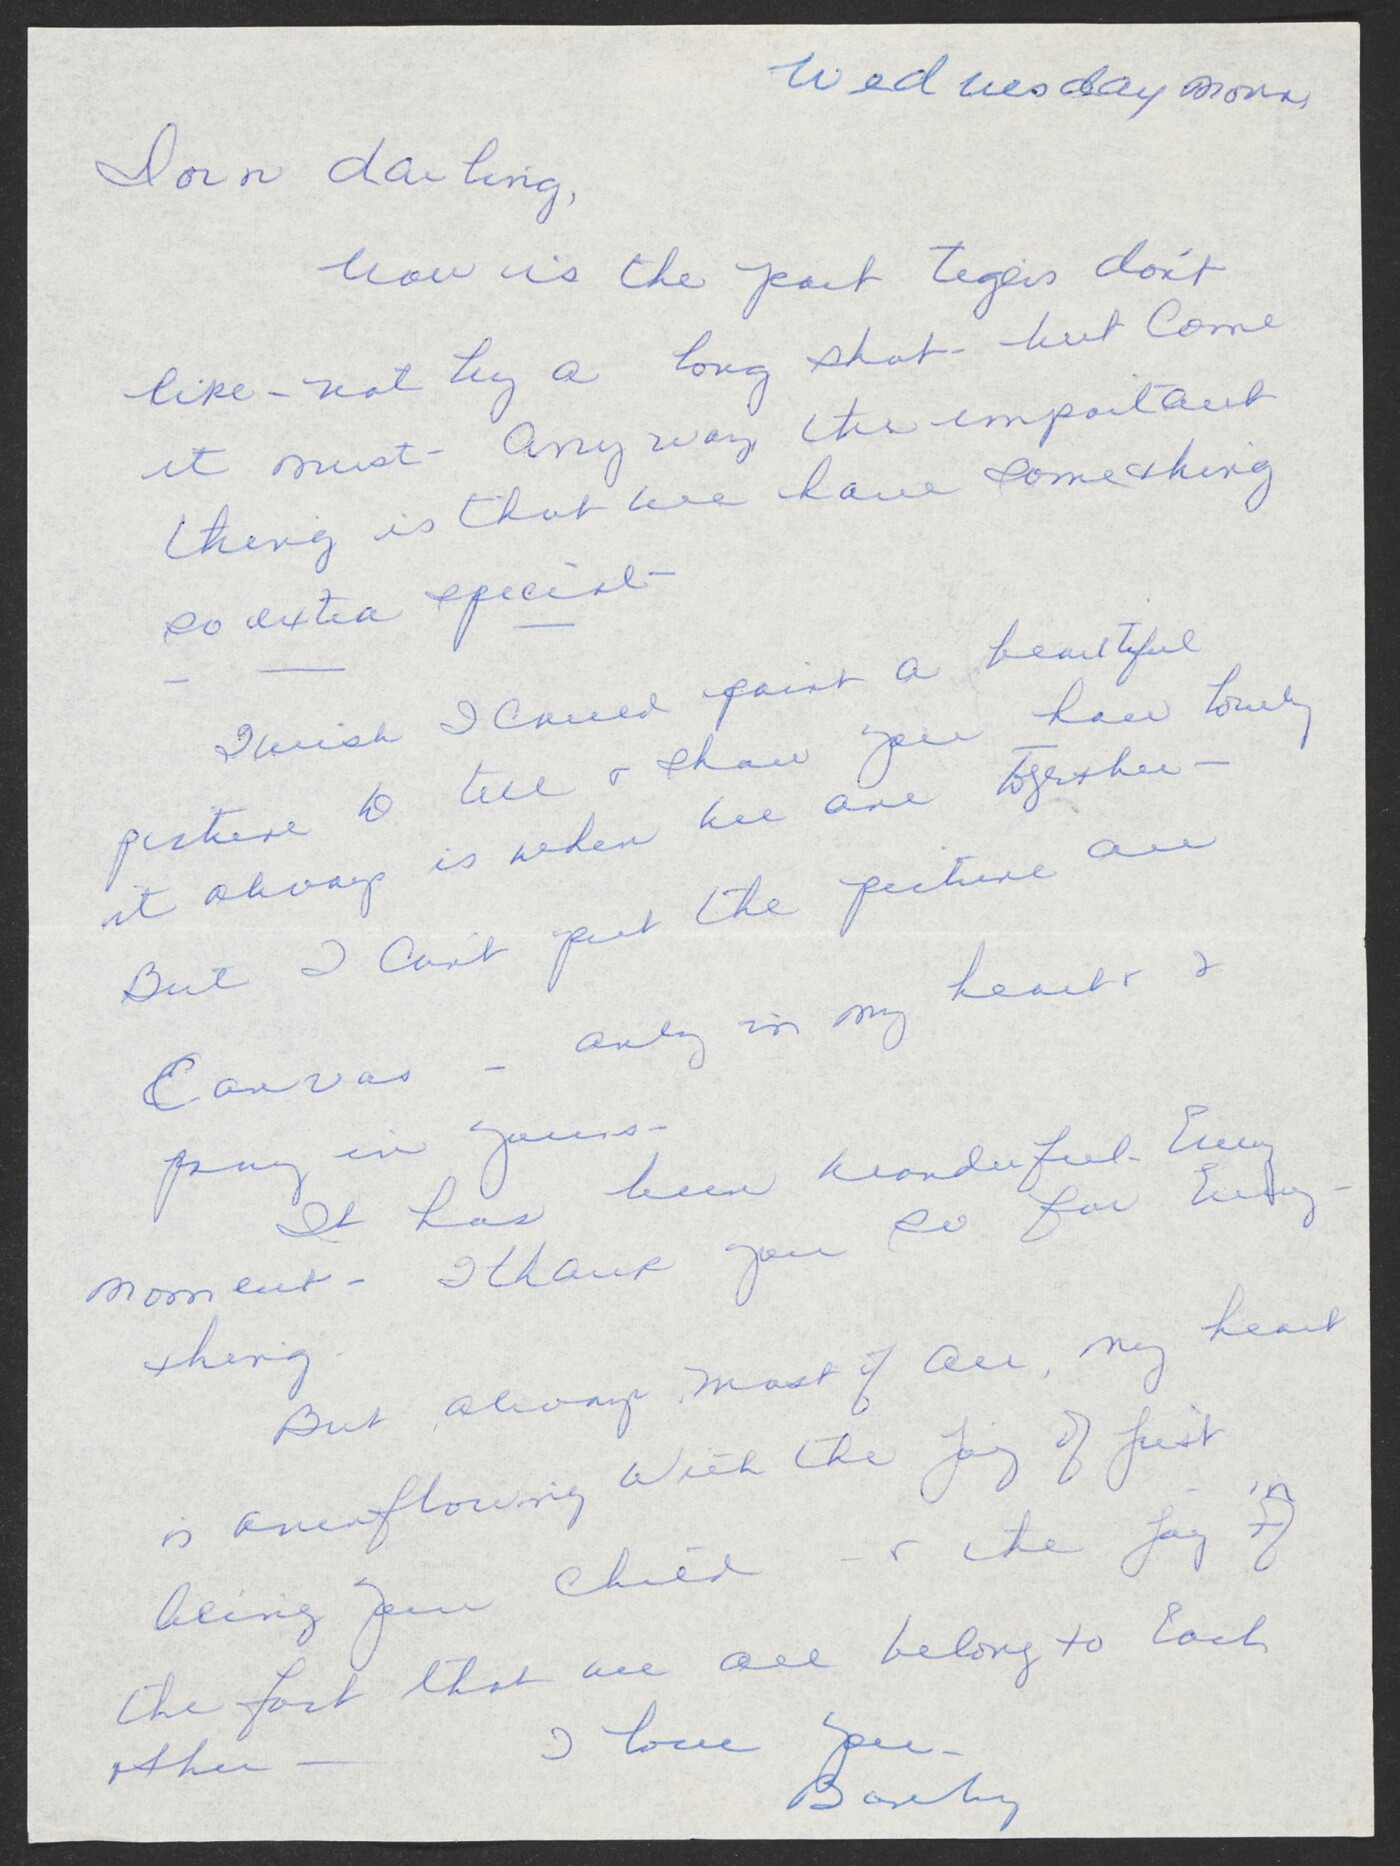 Wednesday morn
darling,
Now is the part Tigers don't
like - not by a long shot - but Come
it must - Anyway the important
thing is that we have something
so extra special -
I wish I could paint a beautiful
picture to tell & show you how lovely
it always is when we are together -
But I can't put the picture on
Canvas - only in my heart & I
pray in yours -
It has been wonderful - Every
moment - I thank you so for Every -
thing.
But always, most of all, my heart
is overflowing with the joy of just
being your child - & the joy in
the fact that we all belong to Each
other - I love you -